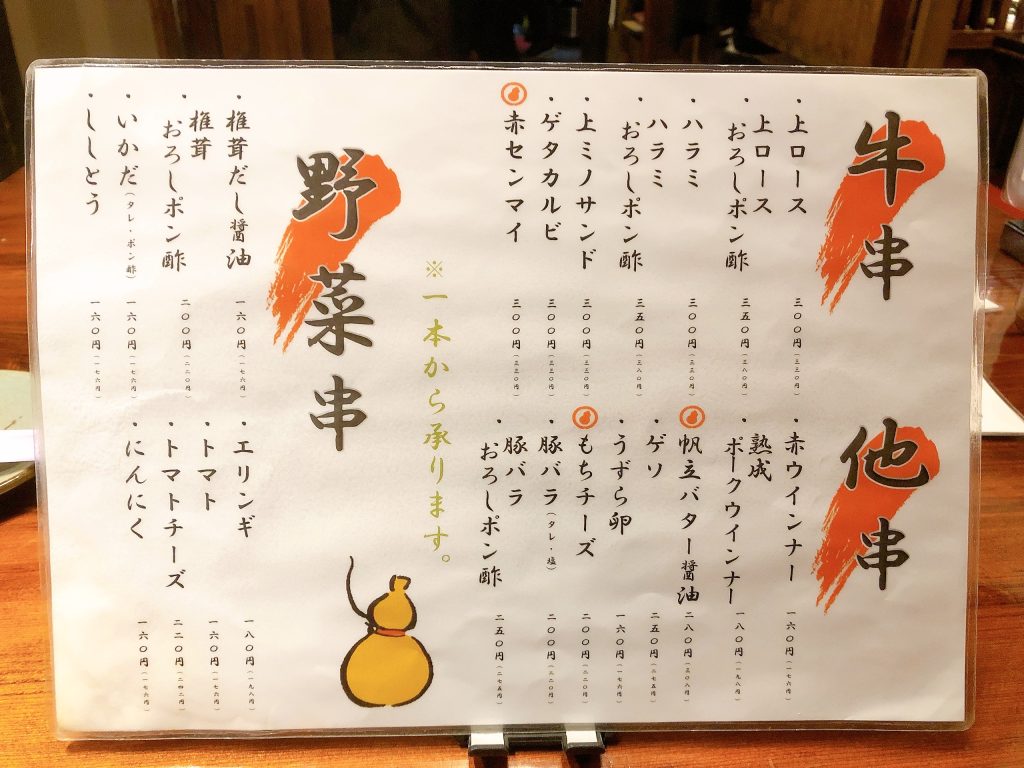 牛串
・上ロース 三〇〇円(三三〇円)
・上ロース
おろしポン酢 三五〇円(三八〇円)
・ハラミ 三〇〇円(三三〇円)
・ハラミ
おろしポン酢 三五〇円(三八〇円)
・上ミノサンド 三〇〇円(三三〇円)
・ゲタカルビ 三〇〇円(三三〇円)
赤センマイ 三〇〇円(三三〇円)
他串
・赤ウインナー 一六〇円(一七六円)
・熟成
ポークウインナー 一八〇円(一九八円)
帆立バター醤油 二八〇円(三〇八円)
・ゲソ 二五〇円(二七五円)
・うずら卵 一六〇円(一七六円)
もちチーズ 二〇〇円(二二〇円)
・豚バラ(タレ・塩) 二〇〇円(二二〇円)
・豚バラ
おろしポン酢 二五〇円(二七五円)
※一本から承ります。
野菜串
・椎茸だし醤油 一六〇円(一七六円)
・椎茸
おろしポン酢 二〇〇円(二二〇円)
・いかだ(タレ・ポン酢) 一六〇円(一七六円)
・ししとう 一六〇円(一七六円)
・エリンギ 一八〇円(一九八円)
・トマト 一六〇円(一七六円)
・トマトチーズ 二二〇円(二四二円)
・にんにく 一六〇円(一七六円)